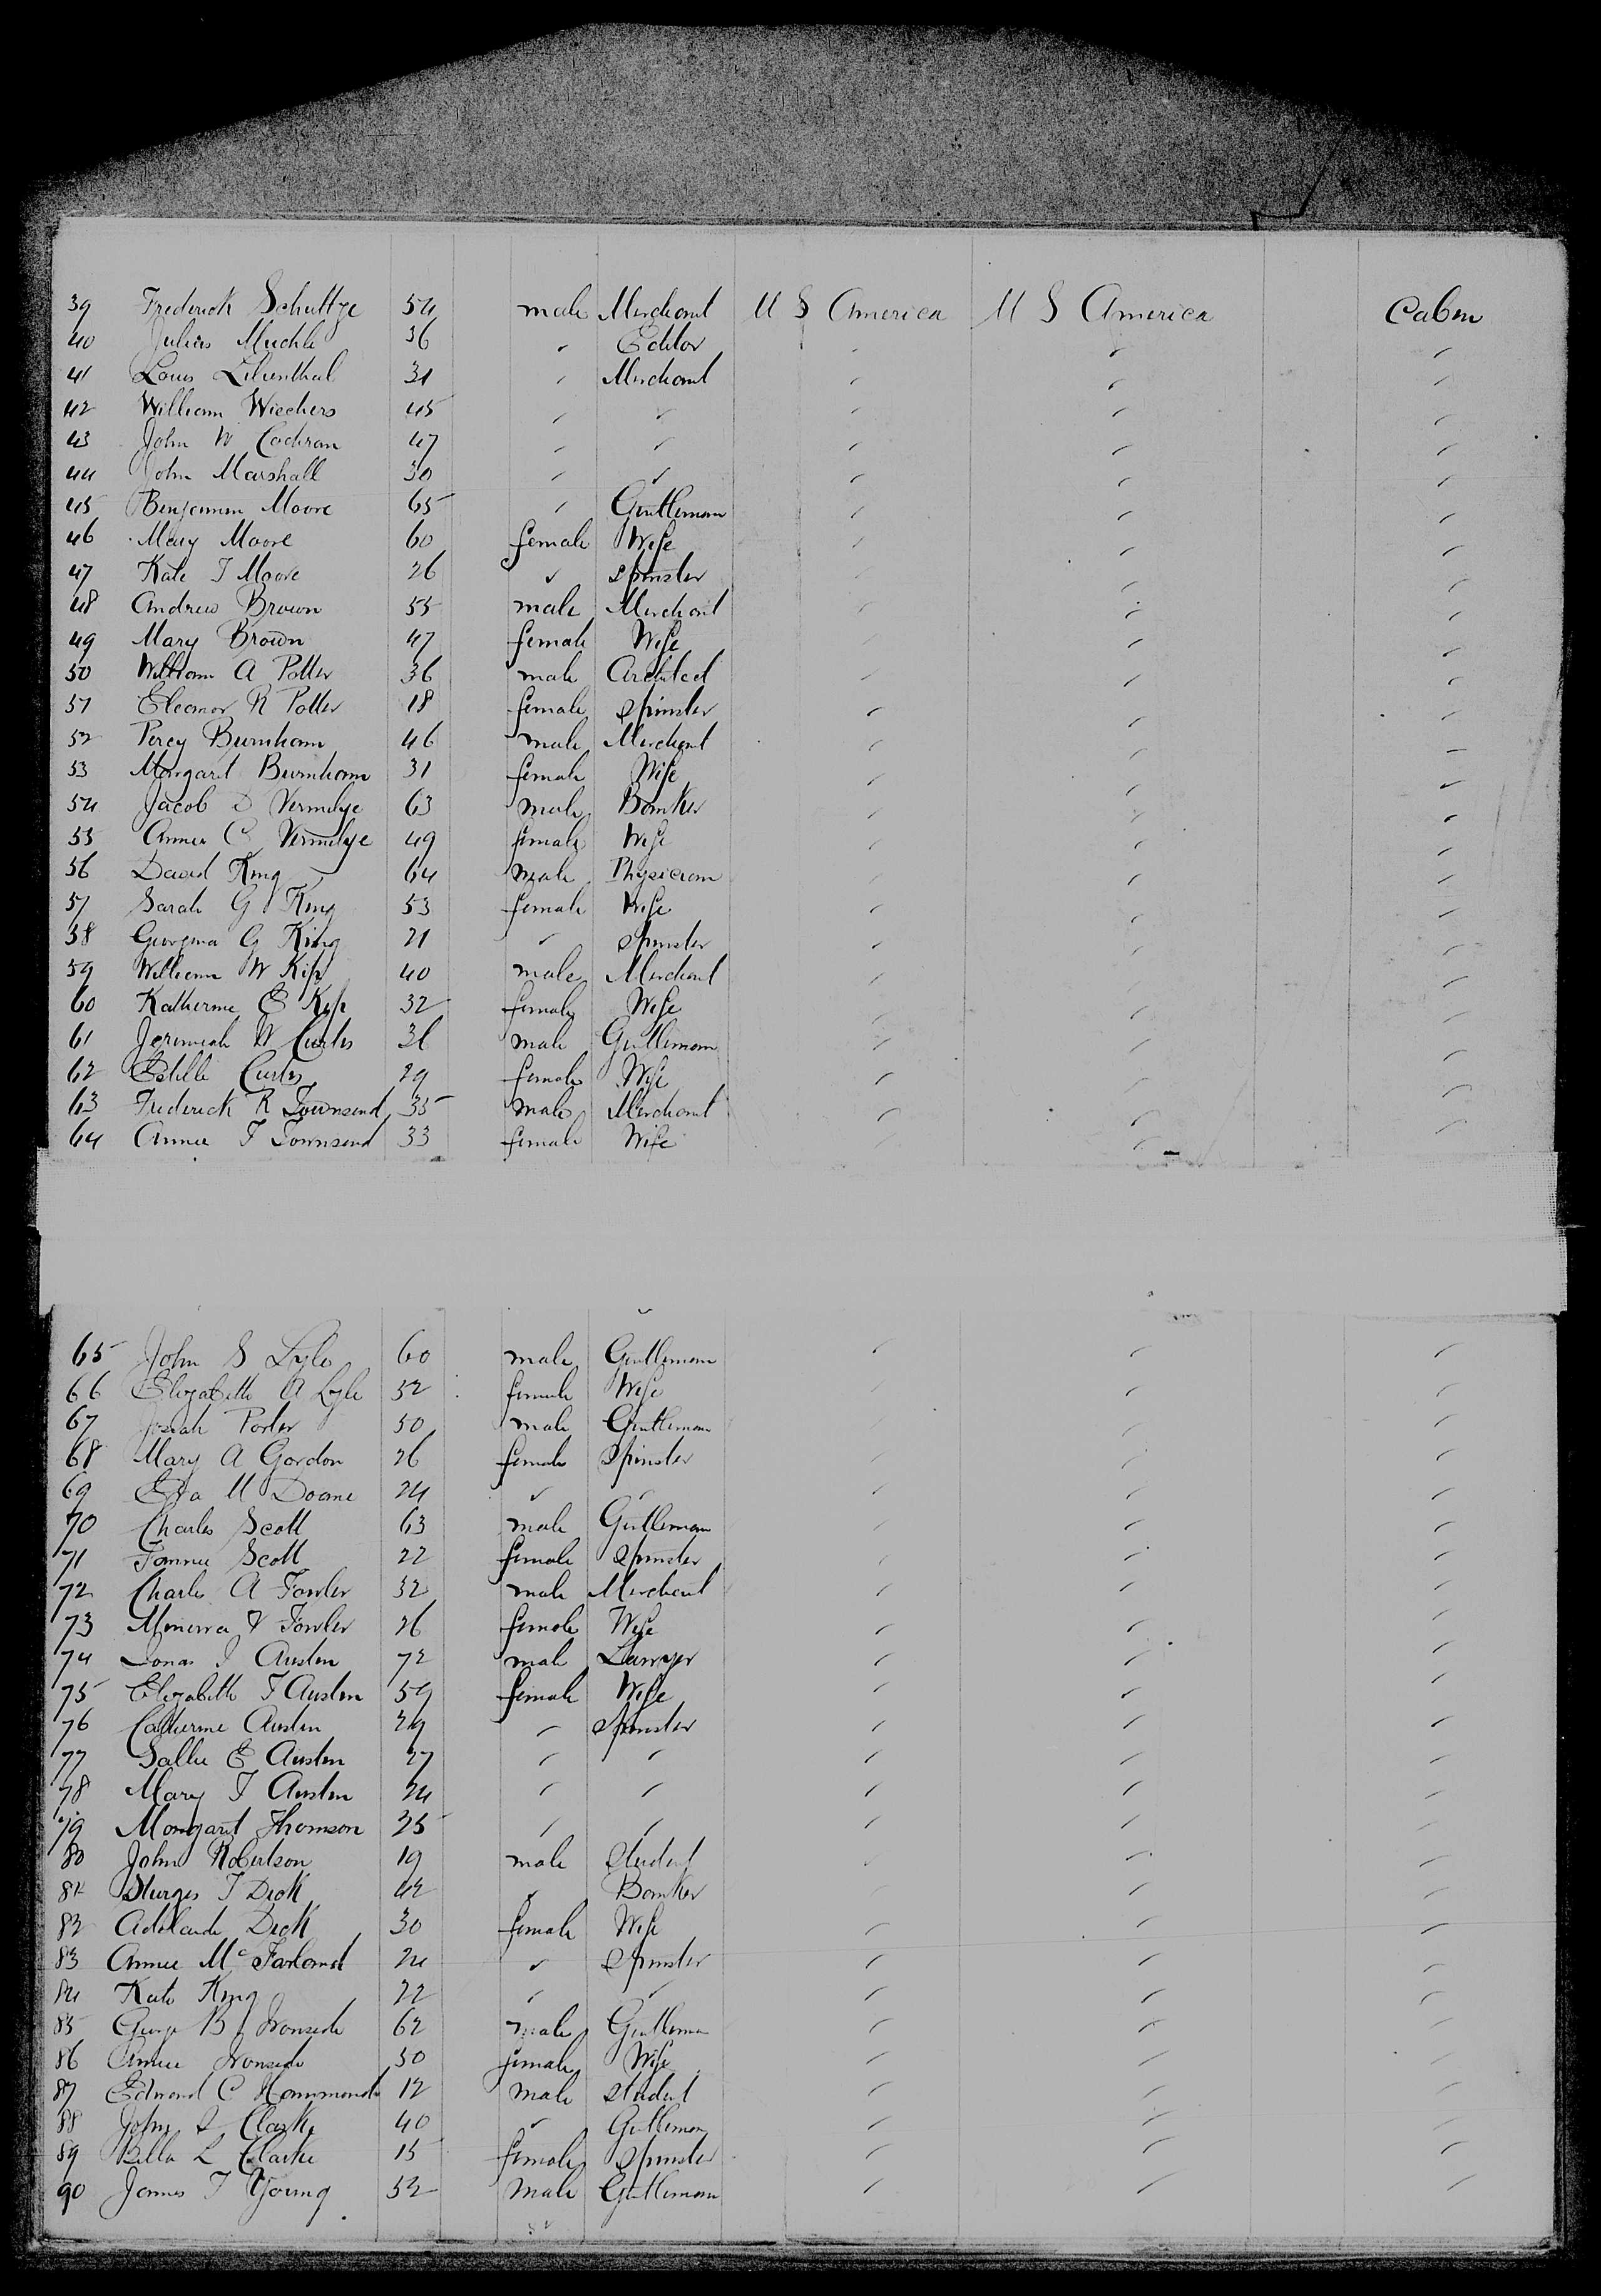 39 Frederick Schultze 54 male Merchant U S America U S America Cabin
40 Julius Muchle 36 " Editor " " "
41 Louis Lilienthal 31 " Merchant " " "
42 William Wiechers 45 " " " " "
43 John W Cochran 47 " " " " "
44 John Marshall 30 " " " " "
45 Benjamin Moore 65 " Gentleman " " "
46 Mary Moore 60 female Wife " " "
47 Kate T Moore 26 " Spinster " " "
48 Andrew Brown 55 male Merchant " " "
49 Mary Brown 47 female Wife " " "
50 William A Potter 36 male Architect " " "
51 Eleanor R Potter 18 female Spinster " " "
52 Percy Burnham 46 male Merchant " " "
53 Margaret Burnham 31 female Wife " " "
54 Jacob D Vermilye 63 male Banker " " "
55 Anna C Vermilye 49 female Wife " " "
56 David King 64 male Physician " " "
57 Sarah G King 53 female Wife " " "
58 Georgina G King 21 " Spinster " " "
59 William W Kip 40 male Merchant " " "
60 Katherine E Kip 32 female Wife " " "
61 Jeremiah W Curtis 36 male Gentleman " " "
62 Estelle Curtis 29 female Wife " " "
63 Frederick R Townsend 35 male Merchant " " "
64 Annie F Townsend 33 female Wife " " "
65 John S Lyle 60 male Gentleman " " "
66 Elizabeth A Lyle 52 female Wife " " "
67 Josiah Porter 50 male Gentleman " " "
68 Mary A Gordon 26 female Spinster " " "
69 M Doane 24 " " " " "
70 Charles Scott 63 male Gentleman " " "
71 Fannie Scott 22 female Spinster " " "
72 Charles A Fowler 32 male Merchant " " "
73 Minerva Fowler 26 female Wife " " "
74 Austen 72 male Lawyer " " "
75 Elizabeth T Austen 59 female Wife " " "
76 Catherine Austen 29 " Spinster " " "
77 Sallie E Austen 27 " " " " "
78 Mary T Austen 24 " " " " "
79 Margaret Thomson 25 " " " " "
80 John Robertson 19 male Student " " "
81 Sturges T Dick 42 " Banker " " "
82 Adelaide Dick 30 female Wife " " "
83 Annie McFarland 24 " Spinster " " "
84 Kate King 22 " " " " "
85 George B Ironside 62 male Gentleman " " "
86 Annie Ironside 50 female Wife " " "
87 Edmond C Hammond 12 male Student " " "
88 John S Clarke 40 " Gentleman " " "
89 Bella L Clarke 15 female Spinster " " "
90 James T Young 52 male Gentleman " " "